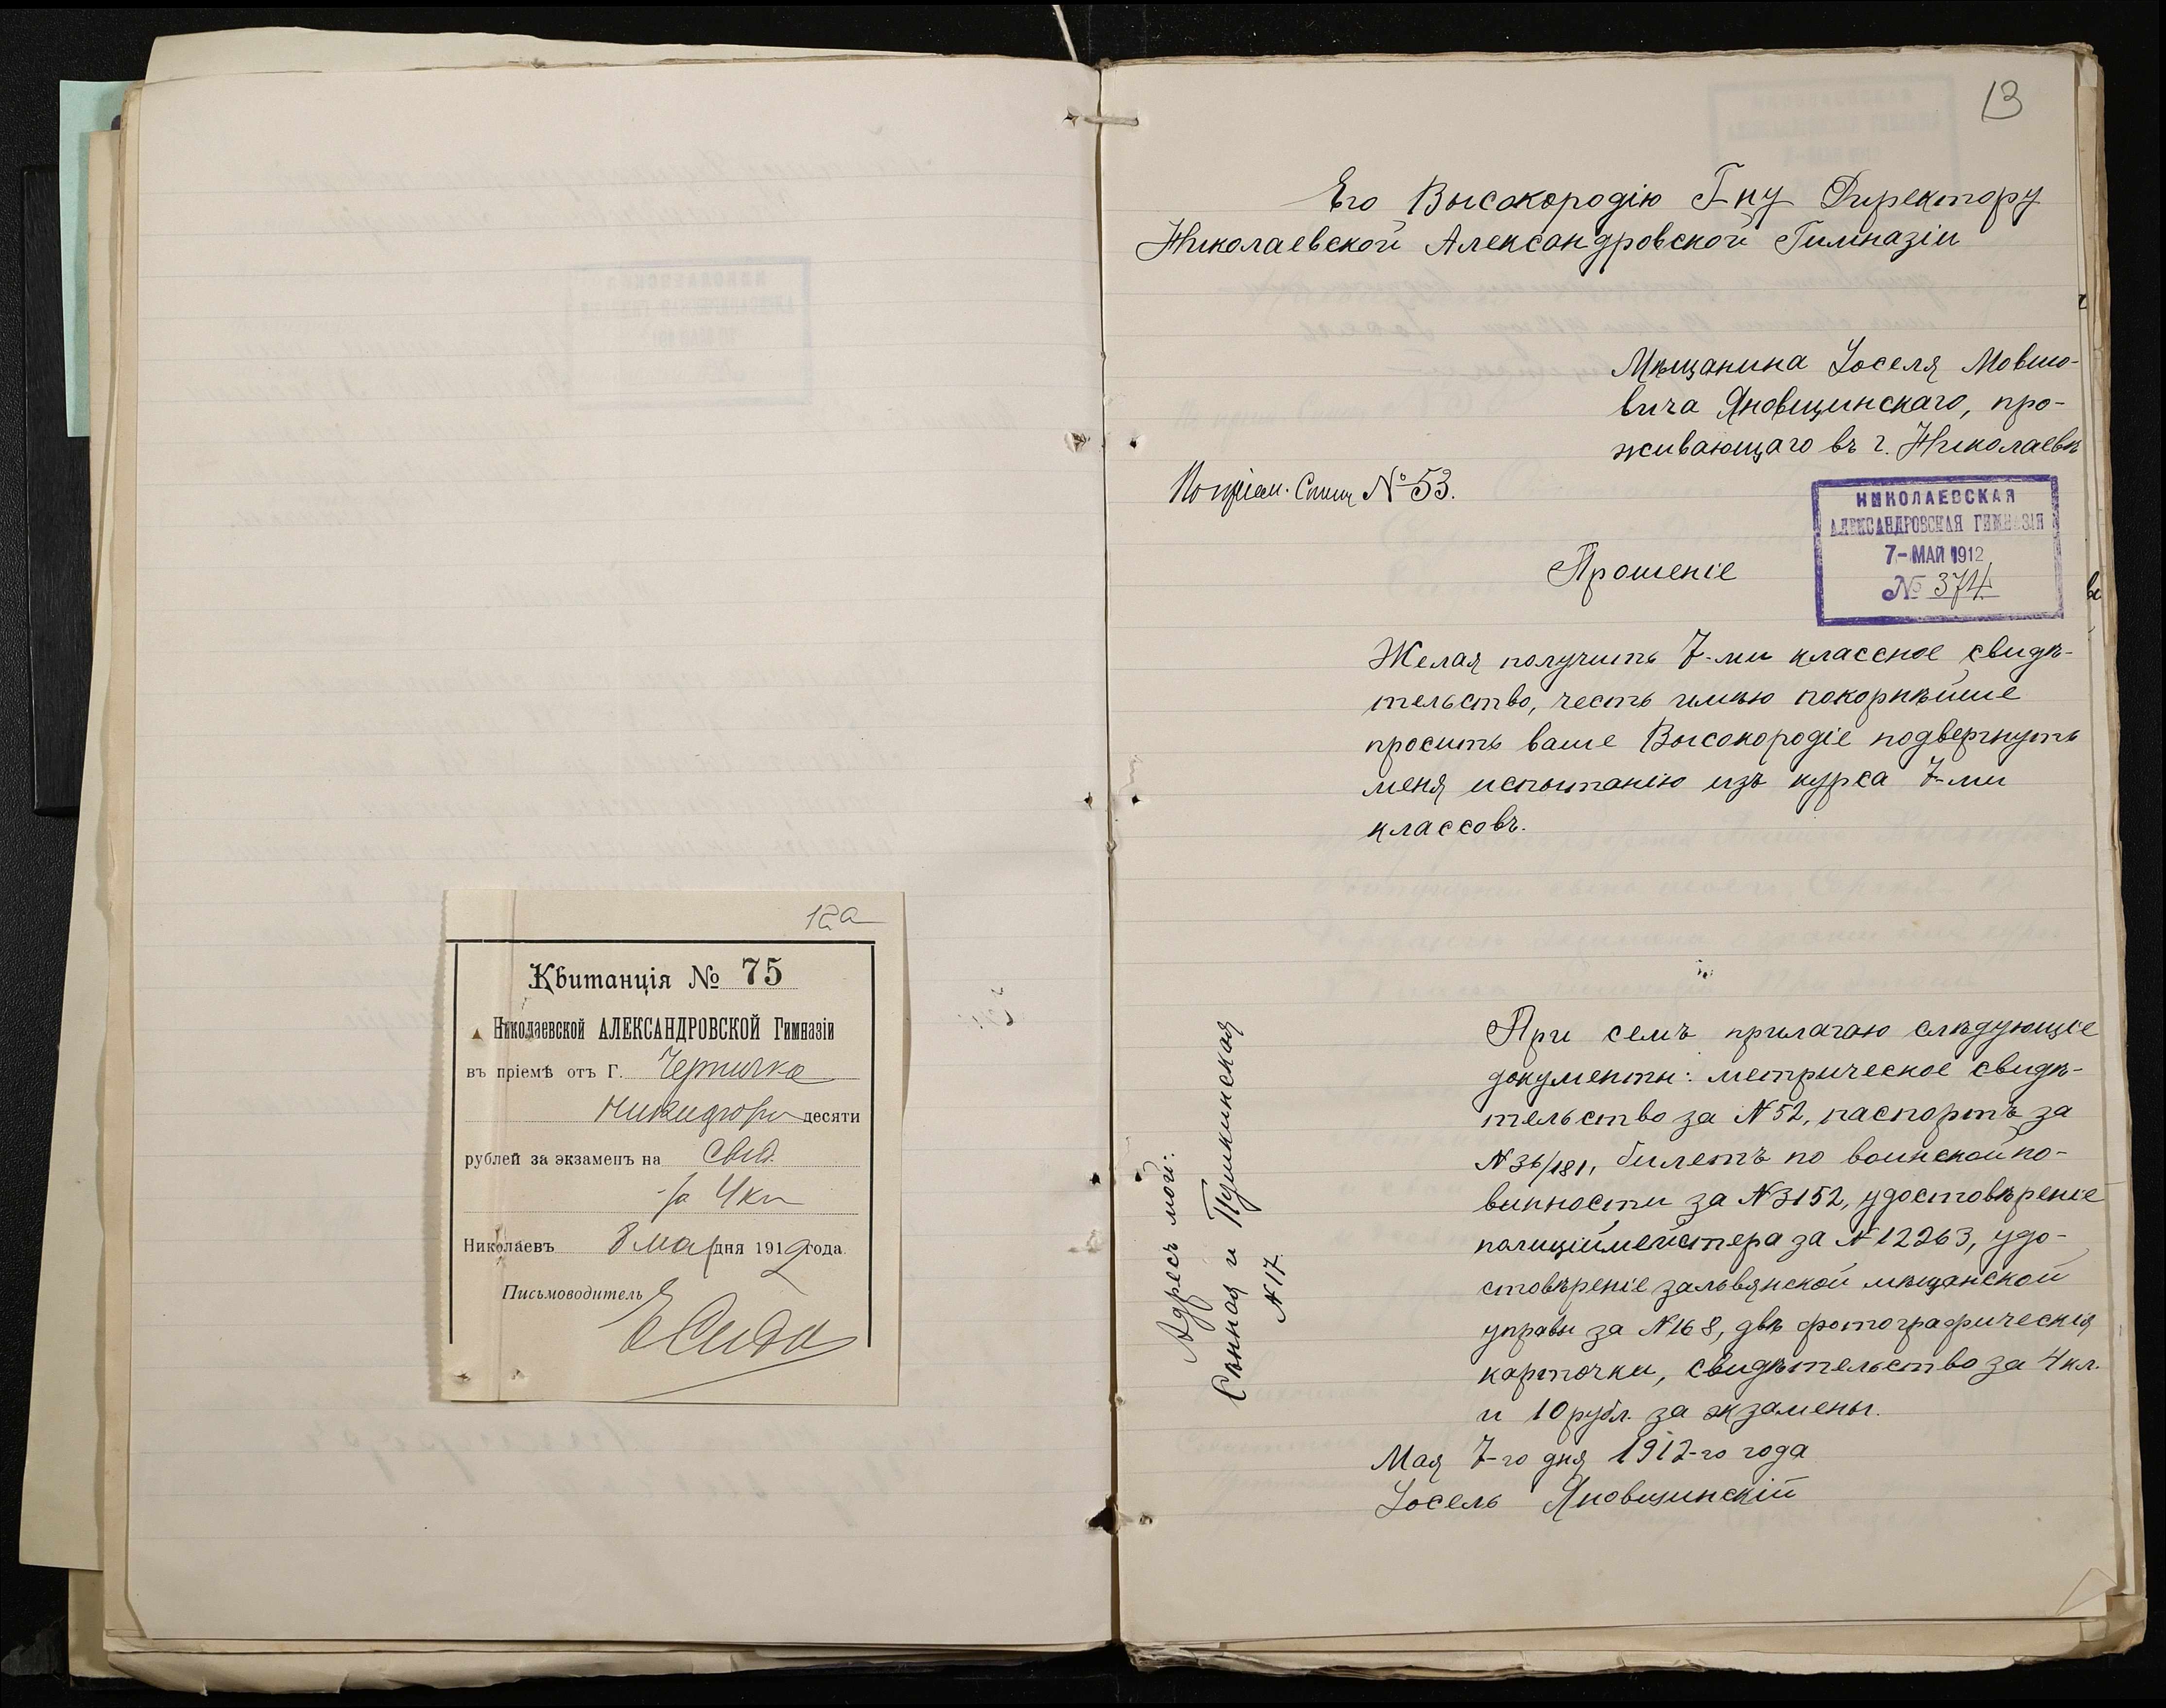 12а
Квитанція № 75
Николаевской АЛЕКСАНДРОВСКОЙ Гимназіи
въ пріемѣ отъ Г.
десяти
рублей за экзаменъ на Свид.
за 4 кл
Николаевъ 8 мая дня 1912 года.
Письмоводитель
13
Его Высокородію Г-ну Директору
Николаевской Александровской Гимназіи
Мѣщанина Іоселя Мовшо-
вича Яновщинскаго, про-
живающаго въ г. Николаевѣ
По пріем. Спис № 53.
НИКОЛАЕВСКАЯ
АЛЕКСАНДРОВСКАЯ ГИМНАЗІЯ
7- МАЙ 1912
№ 374
Прошеніе
Желая получить 7-ми классное свидѣ-
тельство, честь имѣю покорнѣйше
просить ваше Высокородіе подвергнуть
меня испытанію изъ курса 7-ми
классовъ.
При семъ прилагаю слѣдующіе
документы: метрическое свидѣ-
тельство за № 52, паспортъ за
№ 36/181, билетъ по воинской по-
винности за № 3152, удостовѣреніе
полиціймейстера за № 12263, удо-
стовѣреніе зальвянской мѣщанской
управы за № 168, двѣ фотографическія
карточки, свидѣтельство за 4 кл.
и 10 рубл. за экзамены.
Мая 7-го дня 1912-го года
Іосель Яновщинскій
Адресъ мой:
Сѣнная и Пушкинская
№ 17.